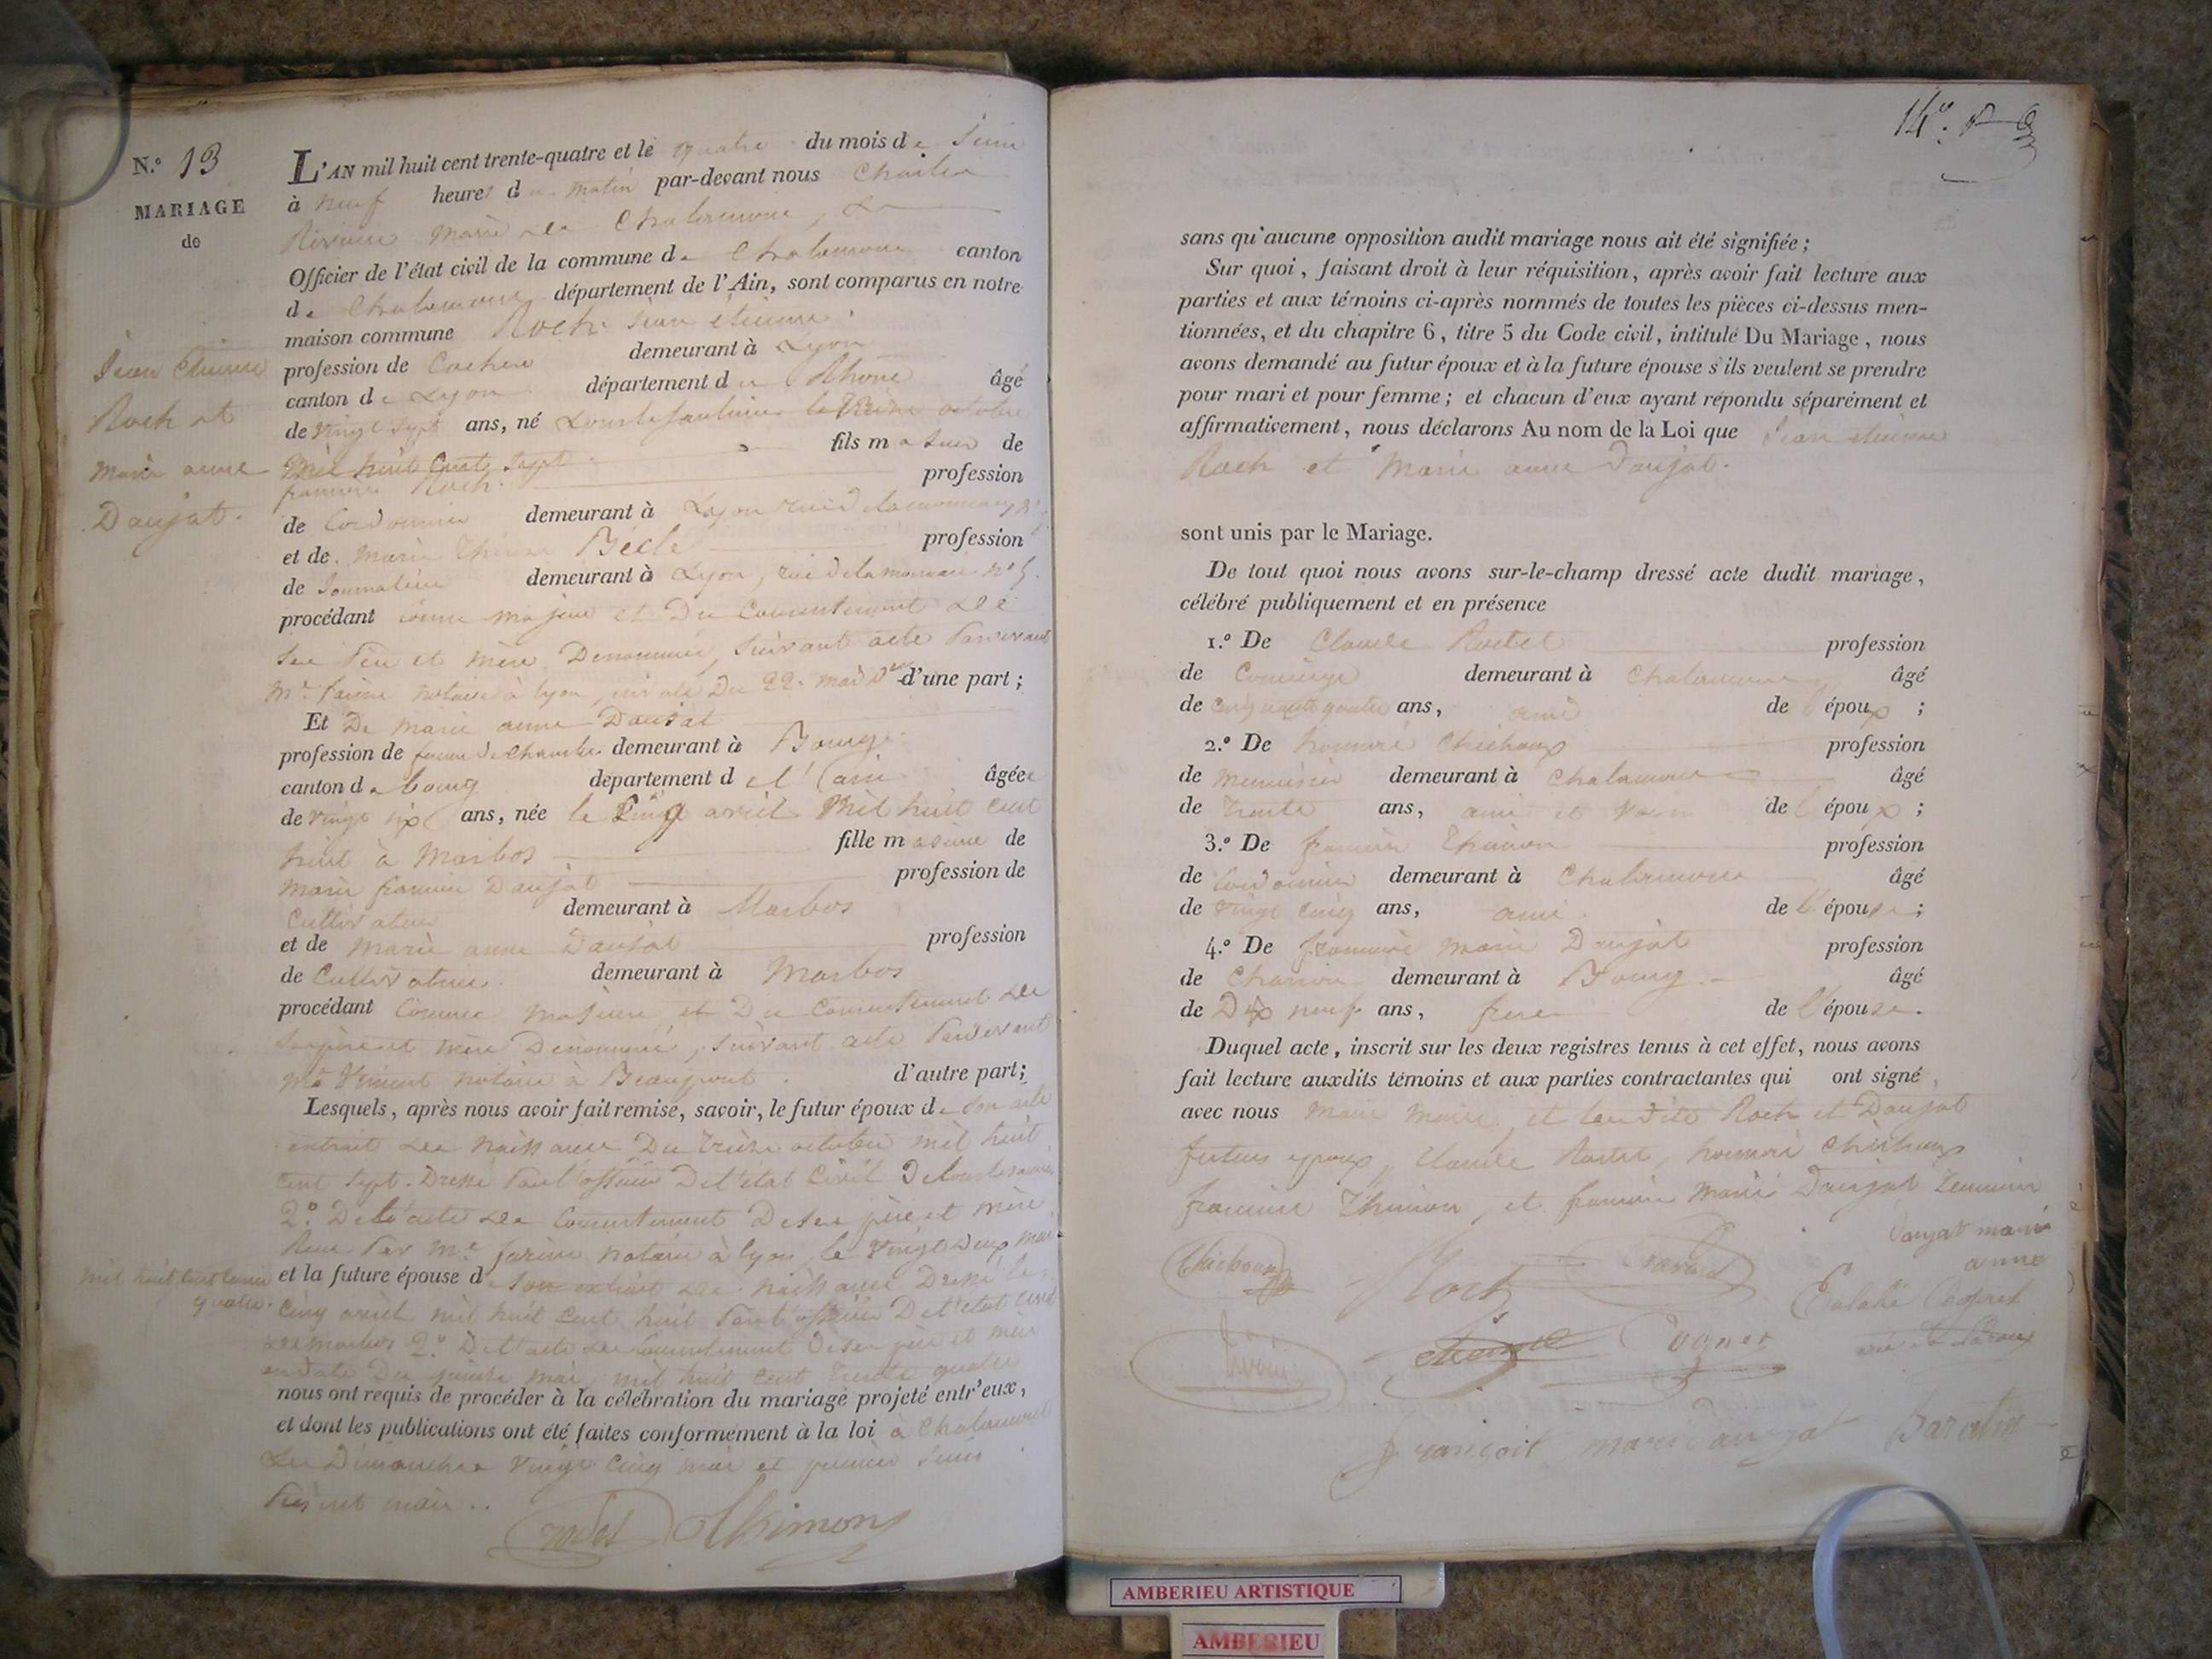 N.º 13
MARIAGE
de
Jean Etienne
Roch et
Marie anne
Daujat.
L'AN mil huit cent trente-quatre et le quatre du mois de Juin
à neuf heures du matin par-devant nous Charles
maire de Chalamont,
Officier de l'état civil de la commune de Chalamont canton
de Chalamont département de l'Ain, sont comparus en notre
maison commune Roch Jean étienne
profession de Cocher demeurant à Lyon
canton de Lyon département du Rhône âgé
de vingt sept ans, né octobre
mil huit Cent Sept fils majeur de
françois Roch profession
de Cordonnier demeurant à Lyon rue de la monnay
et de Marie Thérèse Bécle profession
de Journalière demeurant à Lyon, rue de la monnaie nº 5.
procédant Comme majeur et Du Consentement de
ses Père et mère Denommés, suivant acte Pardevant
notaire à lyon, Du 22 mai d'une part ;
Et De marie anne Daujat
profession de femme de chambre demeurant à Bourg
canton de bourg département de l'ain âgée
de vingt six ans, née le Cinq avril Mil huit cent
huit à Marbos fille majeure de
Marie françois Daujat profession de
Cultivateur demeurant à Marbos
et de marie anne Daujat profession
de Cultivatrice demeurant à Marbos
procédant Comme Majeure et Du Consentement de
père et mère Denommés, suivant acte Pardevant
notaire à Beaupont d'autre part ;
Lesquels, après nous avoir fait remise, savoir, le futur époux de
extrait de naissance Du treize octobre mil huit
cent sept. Dressé Par l'officier De l'état Civil
2º. De l'acte de Consentement De ses père et mère
Par Me notaire à lyon le vingt deux mai
mil huit cent trente
quatre.
et la future épouse de son extrait de naissance Dressé le
Cinq avril mil huit Cent huit Par l'officier De l'état Civil
de marbos 2º. De l'acte de Consentement De ses père et mère
en date Du quinze mai mil huit Cent trente quatre
nous ont requis de procéder à la célébration du mariage projeté entr'eux,
et dont les publications ont été faites conformément à la loi à Chalamont
les Dimanches vingt Cinq mai et premier Juin
Thimon
14e.
sans qu'aucune opposition audit mariage nous ait été signifiée ;
Sur quoi, faisant droit à leur réquisition, après avoir fait lecture aux
parties et aux témoins ci-après nommés de toutes les pièces ci-dessus men-
tionnées, et du chapitre 6, titre 5 du Code civil, intitulé Du Mariage, nous
avons demandé au futur époux et à la future épouse s'ils veulent se prendre
pour mari et pour femme ; et chacun d'eux ayant répondu séparément et
affirmativement, nous déclarons Au nom de la Loi que Jean étienne
Roch et Marie anne Daujat.
sont unis par le Mariage.
De tout quoi nous avons sur-le-champ dressé acte dudit mariage,
célébré publiquement et en présence
1.º De Claude profession
de Concierge demeurant à Chalamont âgé
de cinquante quatre ans, ami de l'époux ;
2.º De honnoré profession
de menuisier demeurant à Chalamont âgé
de trente ans, ami et de l'époux ;
3.º De françois Thimon profession
de Cordonnier demeurant à Chalamont âgé
de vingt Cinq ans, ami de l'épouse ;
4.º De françois Marie Daujat profession
de Charron demeurant à Bourg âgé
de Dix neuf ans, frere de l'épouse.
Duquel acte, inscrit sur les deux registres tenus à cet effet, nous avons
fait lecture auxdits témoins et aux parties contractantes qui ont signé
avec nous maire et lesdits Roch et Daujat
futurs epoux, Claude honnoré
françois Thimon, et françois Marie Daujat temoins
Daujat marie
anne
Roch
françois marie daujat
AMBERIEU ARTISTIQUE
AMBERIEU